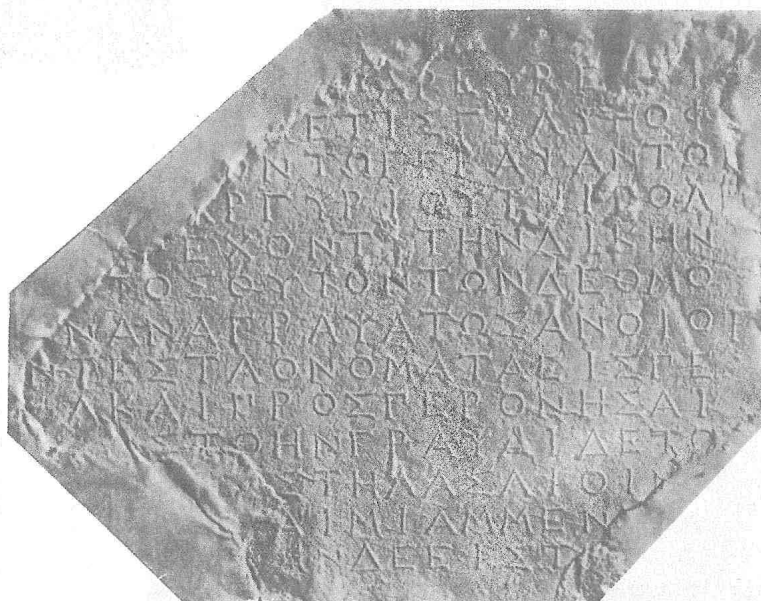 ΑΡΕΥΡΕ
ΕΤΙΣ ΑΥΤΩΦ
ΝΤΩΓΓΡΑΨΑΝΤΩ
ΡΓΥΡΙΟΥΤΗΙΠΟΛΕ
ΕΧΟΝΤΙΤΗΝΔΙΚΗΝ
ΤΟΣΟΥΤΟΝΤΩΝΔΕΟΜΟ
ΝΑΝΑΓΡΑΨΑΤΩΣΑΝΟΙΟΙ
ΝΤΕΣΤΑΟΝΟΜΑΤΑΕΙΣΠΕ
ΑΚΑΙΠΡΟΣΠΕΡΟΝΗΣΑΙ
ΣΤΟΗΝΓΡΑΨΑΙΔΕΤΟ
ΣΤΗΛΑΣΛΙΘΙΝ
ΑΙΜΙΑΜΜΕΝ
ΝΔΕΕΙΣΤ